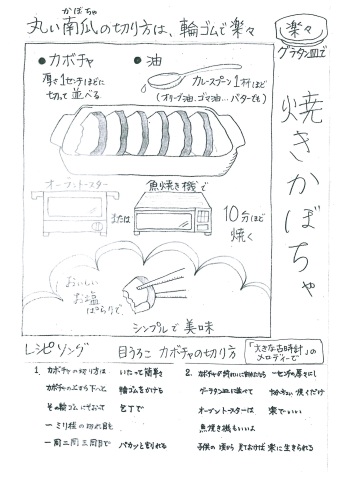 かぼちゃ
丸い南瓜の切り方は、輪ゴムで楽々
楽々
グラタン皿で
焼きかぼちゃ
●カボチャ
厚さ1センチほどに
切って並べる
●油
カレースプーン1杯ほど
(オリーブ油、ゴマ油… バターでも)
オーブントースター
または
魚焼き機で
10分ほど
焼く
おいしい
お塩
ぱらりで、
シンプルで美味
レシピソング
目うろこ カボチャの切り方
「大きな古時計」の
メロディーで
1. カボチャの切り方は いたって簡単
カボチャの上から下へと 輪ゴムをかける
その輪ゴムにそおって 包丁で
一ミリ程の切れ目を
一周二周三周目で パカッと割れる
2. カボチャが 一センチの厚さにし
グータラン皿に並べて 焼くだけ
オーブントースターは 楽でいい
魚焼き機もいいよ
子供の頃から 見ておけば 楽に生きられる